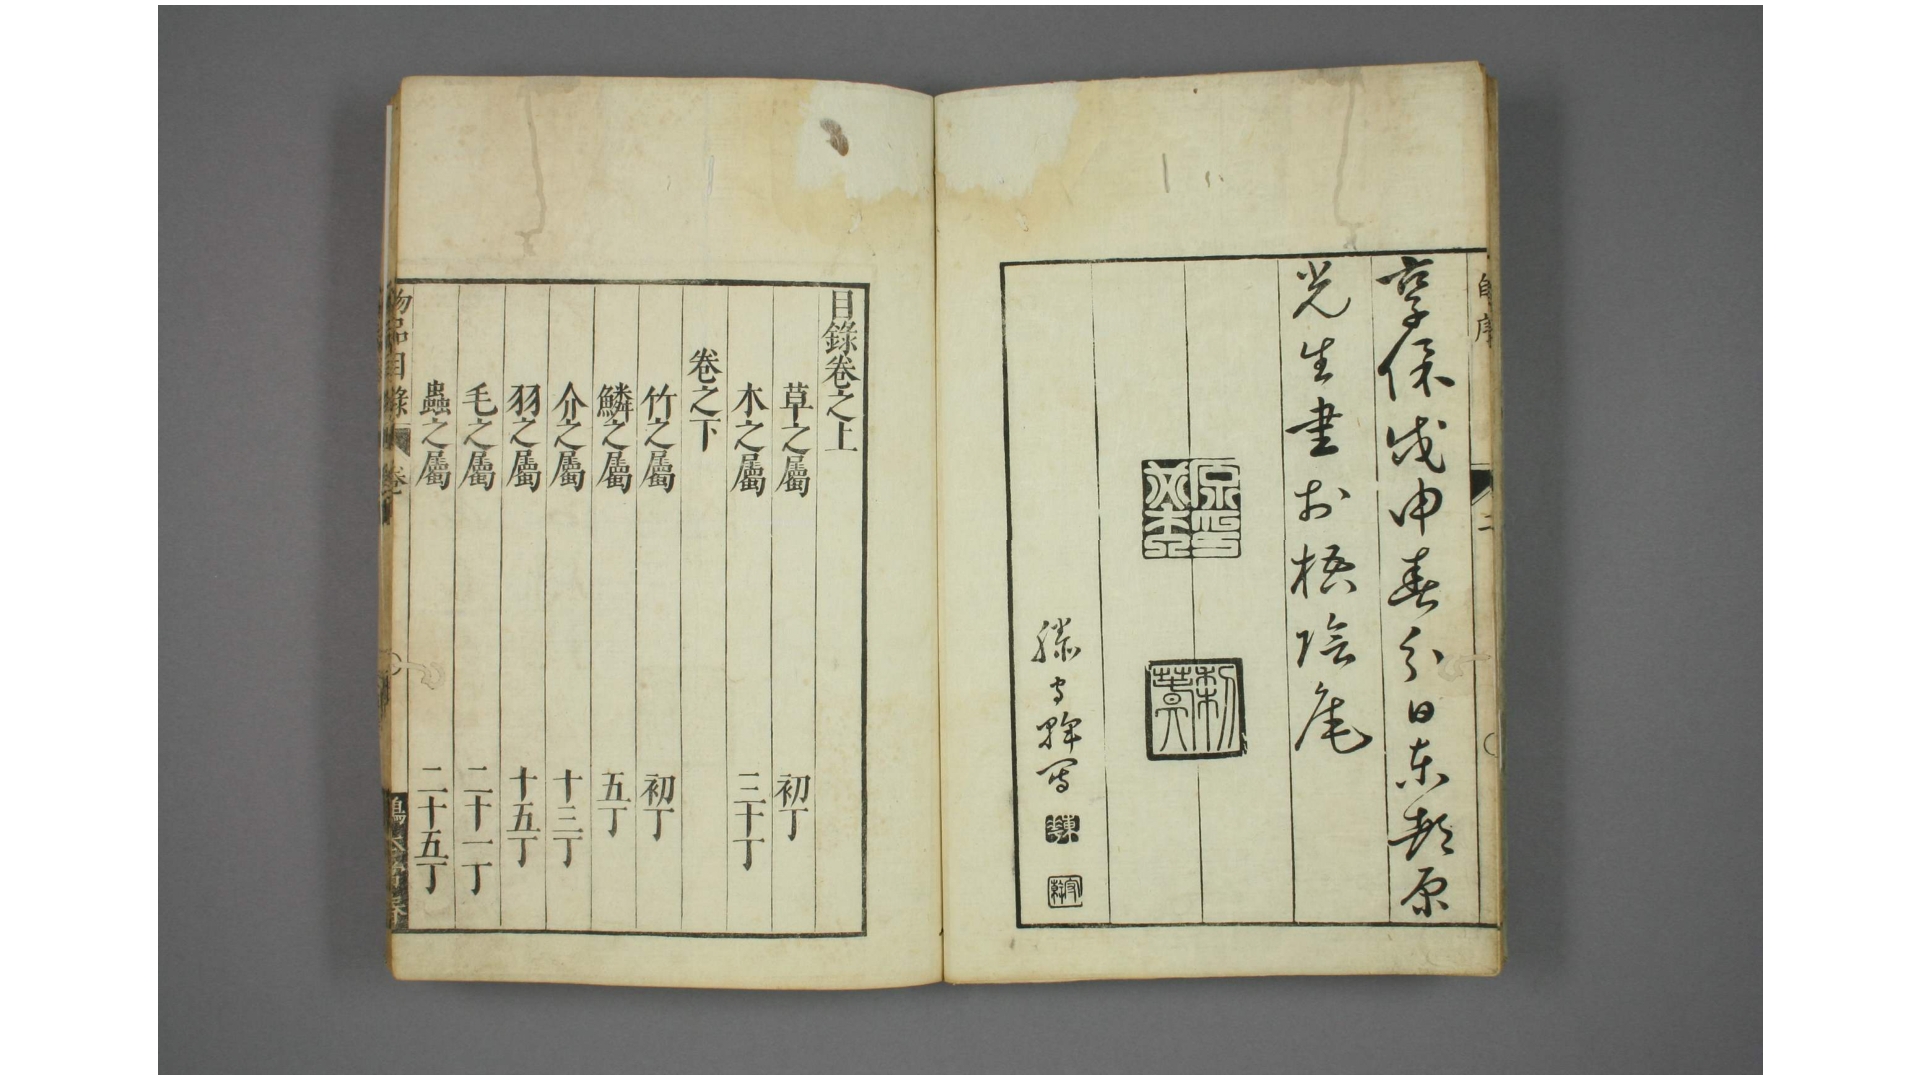 自序
二
享保戊申春分日東都原
光生書於梧陰尾
滕守
寫
目錄卷之上
草之屬 初丁
木之屬 三十丁
卷之下
竹之屬 初丁
鱗之屬 五丁
介之屬 十三丁
羽之屬 十五丁
毛之屬 二十一丁
蟲之屬 二十五丁
物品目錄
卷